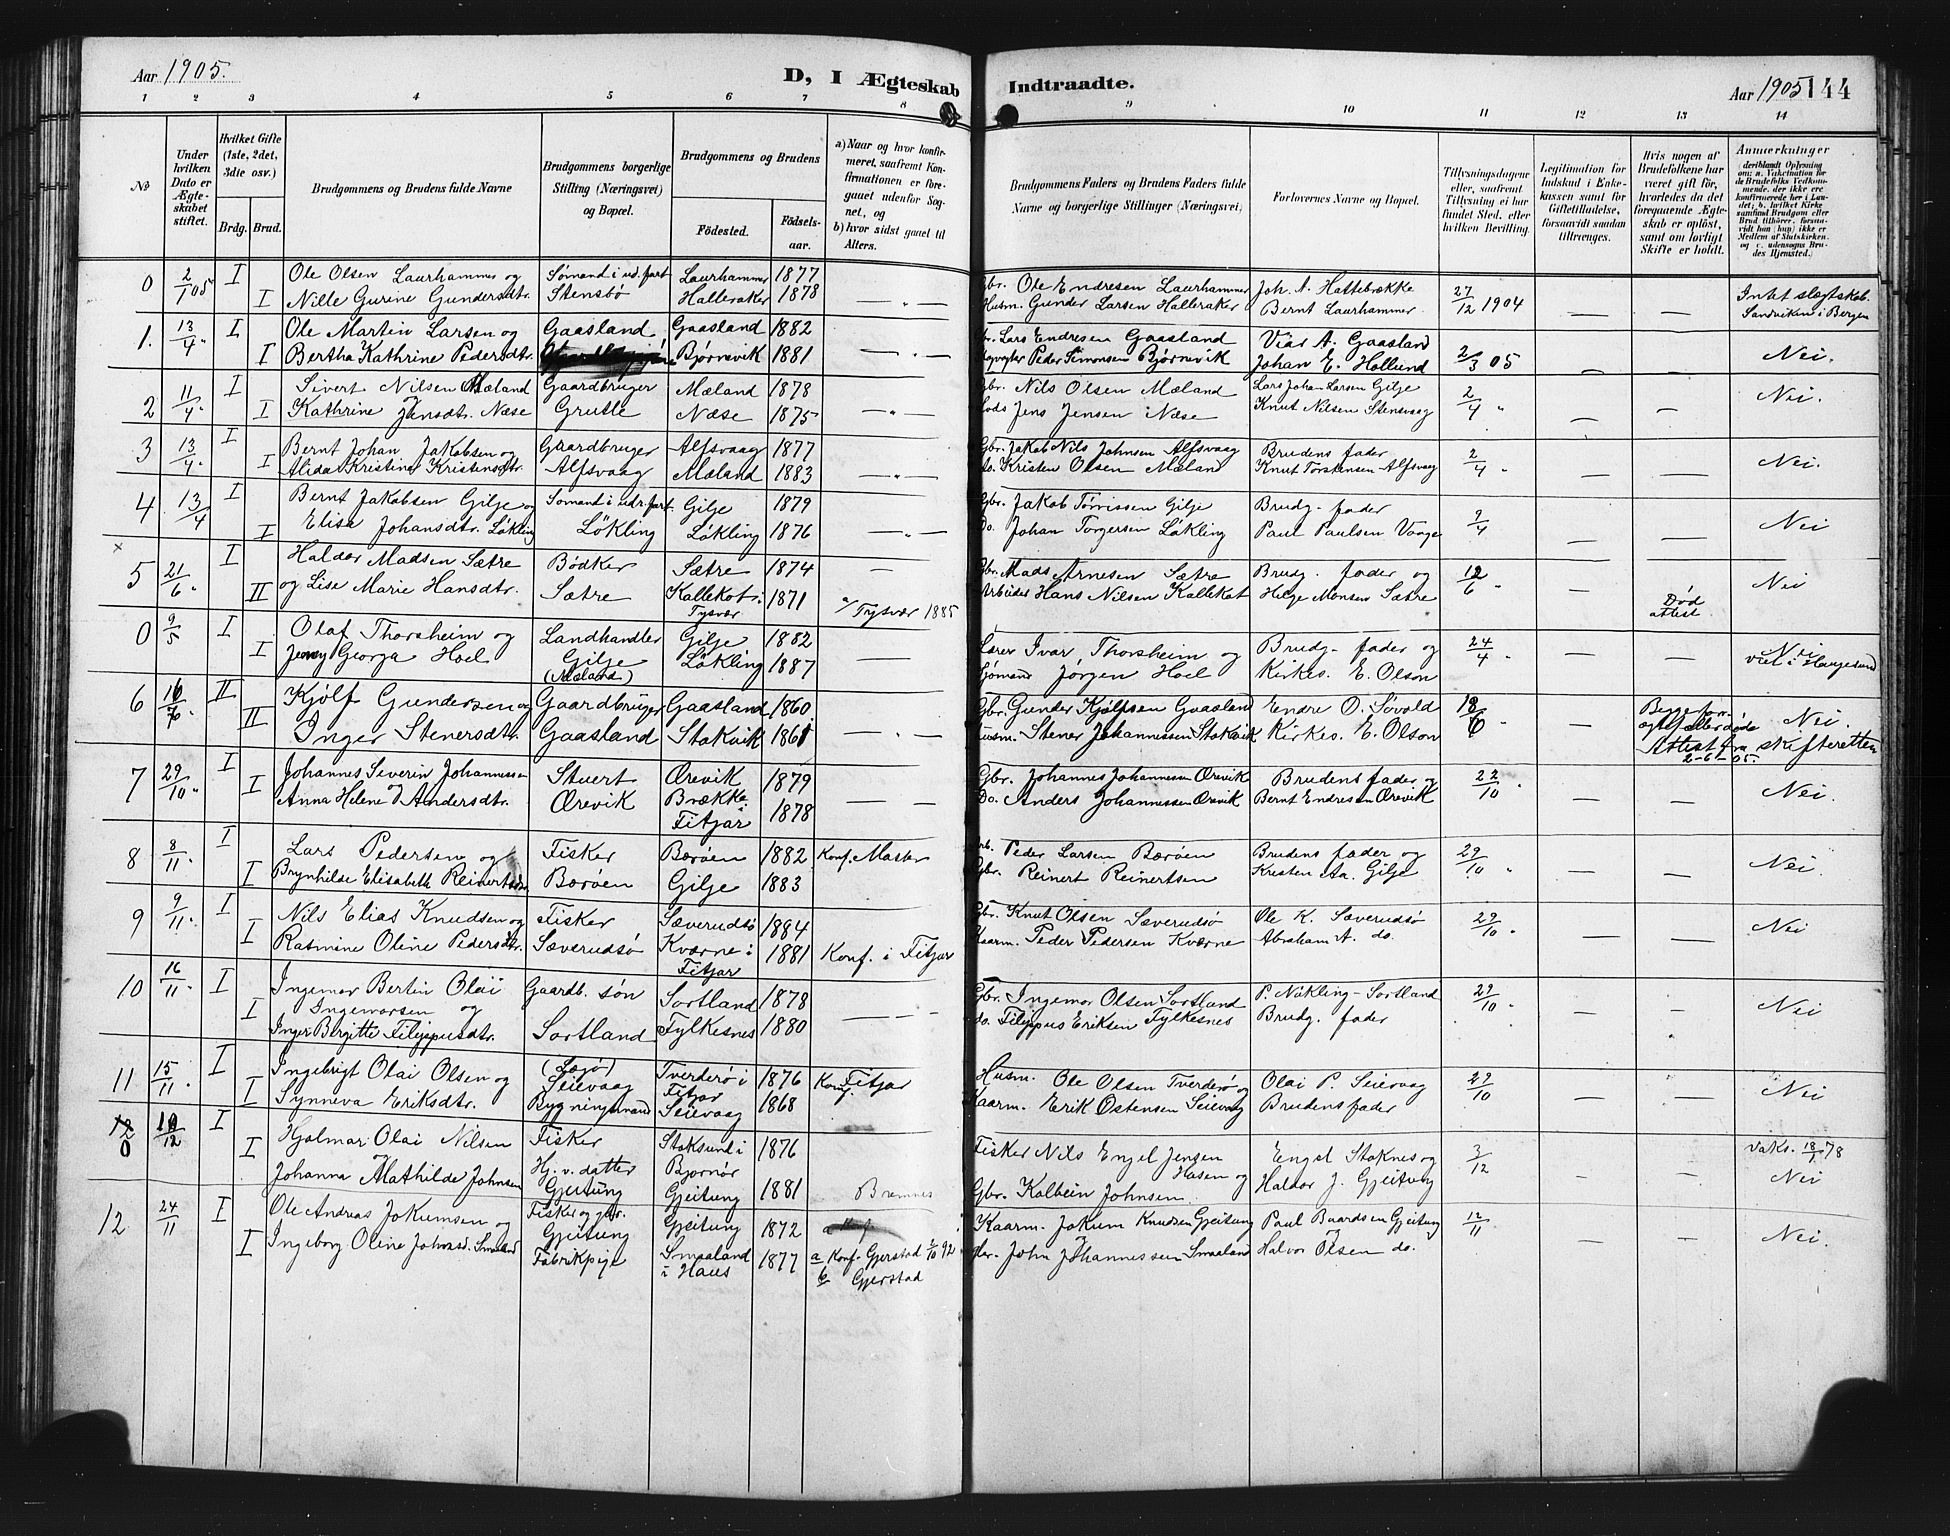 Aar 1905.
D, I Ægteskab Indtraadte.
Aar 1905 144
1 2 3 4 5 6 7 8 9 10 11 12 13 14
№
Under hvilken Dato er Ægteskabet stiftet.
Hvilket Gifte (1ste, 2det, 3die osv.)
Brdg. Brud.
Brudgommens og Brudens fulde Navne
Brudgommens borgerlige Stilling (Næringsvei) og Bopæl.
Brudgommens og Brudens
Födested. Födselsaar.
a) Naar og hvor konfirmeret, saafremt Konfirmationen er foregaaet udenfor Sognet, og
b) hvor sidst gaaet til Alters.
Brudgommens Faders og Brudens Faders fulde Navne og borgerlige Stillinger (Næringsvei)
Forlovernes Navne og Bopæl.
Tillysningsdagene eller, saafremt Tillysning ei har fundet Sted, efter hvilken Bevilling.
Legitimation for Indskud i Enkekassen samt for Giftetilladelse, forsaavidt saadan tiltrænges.
Hvis nogen af Brudefolkene har været gift för, hvorledes da det foregaaende Ægteskab er oplöst, samt om lovligt Skifte er holdt.
Anmærkninger
0 2/1 05 I Ole Olsen Laurhammer og Sømand i ud. fart Laurhammer 1877 Gbr. Ole Endresen Laurhammer Joh. A. Hattebrække 27/12 1904 Intet slegtskab.
I Nille Gurine Gundersdtr. Stensbö Halleraker 1878 Husm. Gunder Larsen Halleraker Bernt Laurhammer Sandviken i Bergen
1. 13/4 I Ole Martin Larsen og Gaasland Gaasland 1882 Lars Endresen Gaasland Viar A. Gaasland
I Bertha Kathrine Pedersdtr. Bjørnevik 1881 Peder Simonsen Bjørnevik Johan E. Hollund 2/3 05 Nei.
2 11/4 I Sivert Nilsen Mæland Gaardbruger Mæland 1878 Gbr. Nils Olsen Mæland Lars Johan Larsen Gilje 2/4 Nei.
I Kathrine Jensdtr. Næse Grutle Næse 1875 Jens Jensen Næse Knut Nilsen Stensvaag
3 13/4 I Bernt Johan Jakobsen og Gaardbruger Alfsvaag 1877 Gbr. Jakob Nils Johnsen Alfsvaag Brudens fader 2/4 Nei.
I Alida Kristina Kristensdtr. Alfsvaag Mæland 1883 do. Kristen Olsen Mæland Knut Torstensen Alfsvaag
4 13/4 I Bernt Jakobsen Gilje og Sømand i udr. fart Gilje 1879 Gbr. Jakob Tørrissen Gilje Brudg. fader 2/4 Nei
I Elisa Johansdtr. Løkling Løkling Løkling 1876 Do. Johan Torgersen Løkling Paul Paulsen Vaage
5 21/6 I Haldor Madsen Sætre Bødker Sætre 1874 Gbr. Mads Arnesen Sætre Brudg. fader og 12/6 Nei
II og Lise Marie Hansdtr. Sætre Kallekot i Tysvær 1871 a/ Tysvær 1885 Arbeider Hans Nilsen Kallekot Helge Monsen Sætre Død attest
0 9/5 I Olaf Thorsheim og Landhandler Gilje 1882 Lærer Ivar Thorsheim og Brudg. fader og 24/4 Nei
I Jenny Georga Hoel Gilje (Mæland) Løkling 1887 Sjømand Jørgen Hoel Kirkes. E. Olson viet i Haugesund
6 16/7 II Kjølf Gundersen og Gaardbruger Gaasland 1860 Gbr. Gunder Kjølfsen Gaasland Endre O. Søvold 18/6 Nei.
II Inger Stenersdtr. Gaasland Stokvik 1861 Husm. Stener Johannessen Stokvik Kirkes. E. Olson Attest fra skifteretten 2-6-05.
7 29/10 I Johannes Severin Johannessen Stuert Ørevik 1879 Gbr. Johannes Johannessen Ørevik Brudens fader og 22/10 Nei.
I Anna Helene Andersdtr. Ørevik Brække i Fitjar 1878 Do. Anders Johannessen Ørevik Bernt Endresen Ørevik
8 8/11 I Lars Pedersen og Fisker Børøen 1882 Konf. Moster Peder Larsen Børøen Brudens fader og 29/10 Nei.
I Brynhilde Elisabeth Reinertsdtr. Børøen Gilje 1883 Gbr. Reinert Reinertsen Kristen Aa. Gilje
9 9/11 I Nils Elias Knudsen og Fisker Sæverudsø 1884 Gbr. Knut Olsen Sæverudsø Ole K. Sæverudsø 29/10 Nei
I Rasmine Oline Pedersdtr. Sæverudsø Kværne i Fitjar 1881 Konf. i Fitjar Kaarm. Peder Pedersen Kværne Abraham A. do.
10 16/11 I Ingemar Bertin Olai Ingemarsen og Gaardb. søn Sortland 1878 Gbr. Ingemar Olsen Sortland P. Nökling-Sortland 29/10 Nei
I Inger Birgitte Filippusdtr. Sortland Fylkesnes 1880 do. Filippus Eriksen Fylkesnes Brudg. fader
11 15/11 I Ingebrigt Olai Olsen og Seievaag Tverderø i Fitjar 1876 Konf. Fitjar Husm. Ole Olsen Tverderø og Olai P. Seievaag 29/10 Nei
I Synneva Eriksdtr. Bygningsmand Seievaag 1868 Kaarm. Erik Østensen Seievaag Brudens fader
0 10/12 I Hjalmar Olai Nilsen Fisker Stoksund i Bjørnør 1876 Fisker Nils Engel Jensen Hasen og Engel Stoknes og 3/12 Vaks. 18/1 78
I Johanna Mathilde Johnsen H. v. datter Gjeitung Gjeitung 1881 Bremnes Gbr. Kolbein Johnsen Haldor J. Gjeitung Nei
12 24/11 I Ole Andreas Jokumsen og Fisker og gbr. Gjeitung Gjeitung 1872 Kaarm. Jokum Knudsen Gjeitung Paul Baardsen Gjeitung 12/11 Nei.
I Ingeborg Oline Johnsd. Smaaland Fabrikpige Smaaland i Haus 1877 a Konf. Gjerstad 2/10 92 John Johannessen Smaaland Halvor Olsen do.
b Gjerstad